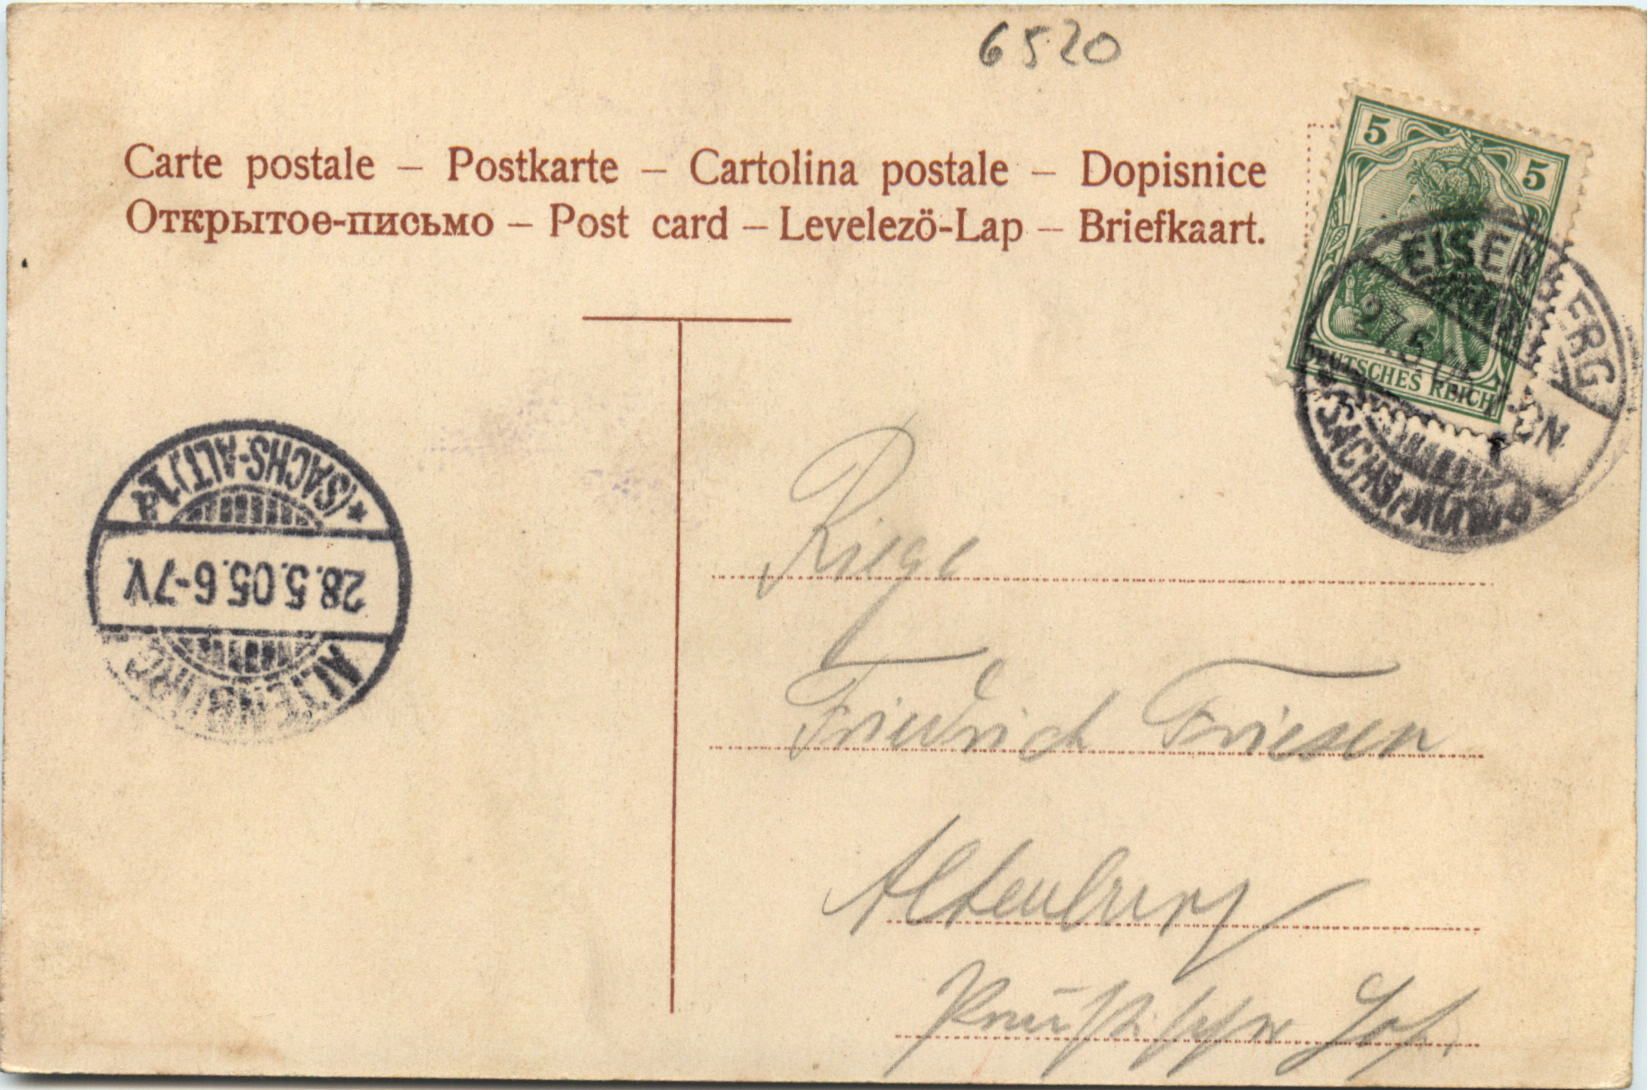 6520
Carte postale – Postkarte – Cartolina postale – Dopisnice
Открытое-письмо – Post card – Levelezö-Lap – Briefkaart.
5 5
DEUTSCHES REICH
EISENBERG
27.5.05
ALTENBURG
28.5.05.6-7V.
*(SACHS-ALT.)1a
Riege
Friedrich Friesen
Altenburg
Preußischer Hof.